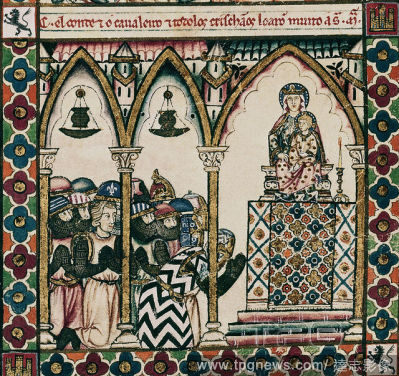 C. el conde ⁊ o cavaleiro ⁊ todolos crischãos loarõ muito a S. M.
www.tpgnews.com 達志影像